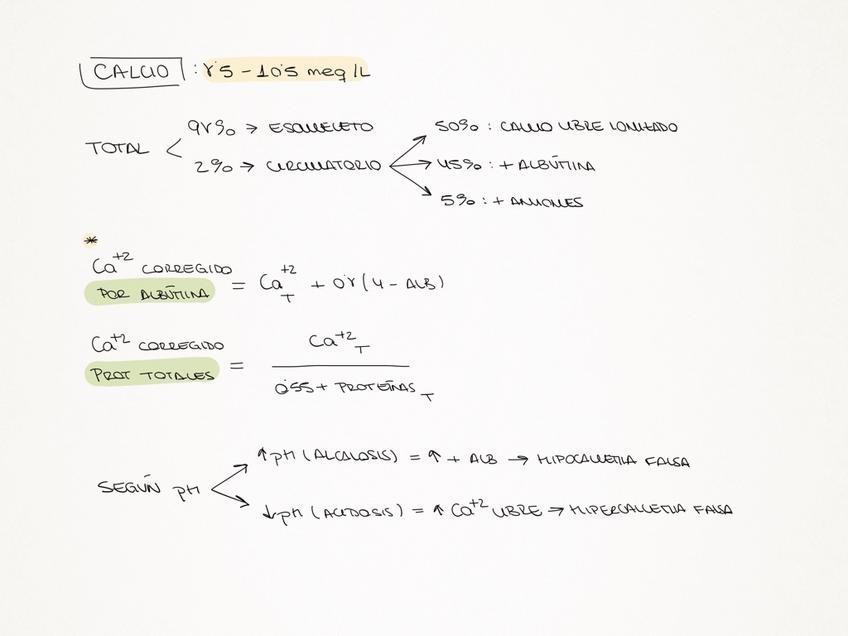 CALCIO : 8'5 - 10'5 meq/L
TOTAL
98% → ESQUELETO
2% → CIRCULATORIO
50% : CALCIO LIBRE IONIZADO
45% : + ALBÚMINA
5% : + ANIONES
*
Ca+2 CORREGIDO POR ALBÚMINA = Ca+2 T + 0'8 (4 - ALB)
Ca+2 CORREGIDO PROT TOTALES = Ca+2 T
0'55 + PROTEÍNAS T
SEGÚN pH
↑ pH (ALCALOSIS) = ↑ + ALB → HIPOCALCEMIA FALSA
↓ pH (ACIDOSIS) = ↑ Ca+2 LIBRE → HIPERCALCEMIA FALSA